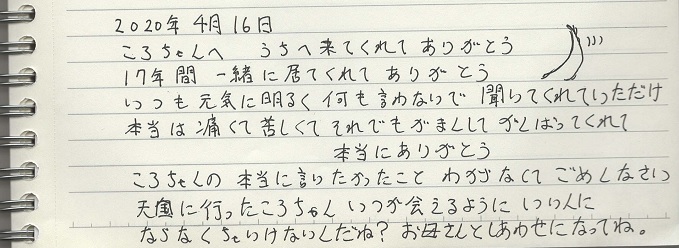 2020年 4月 16日
ころちゃんへ うちへ来てくれて ありがとう
17年間 一緒に居てくれて ありがとう
いつも元気に明るく何も言わないで 聞いてくれていただけ
本当は痛くて苦しくて それでもがまんして がんばってくれて
本当にありがとう
ころちゃんの 本当に言いたかったこと わからなくて ごめんなさい
天国に行ったころちゃん いつか会えるように いい人に
ならなくちゃいけないんだね？ お母さんとしあわせになってね。